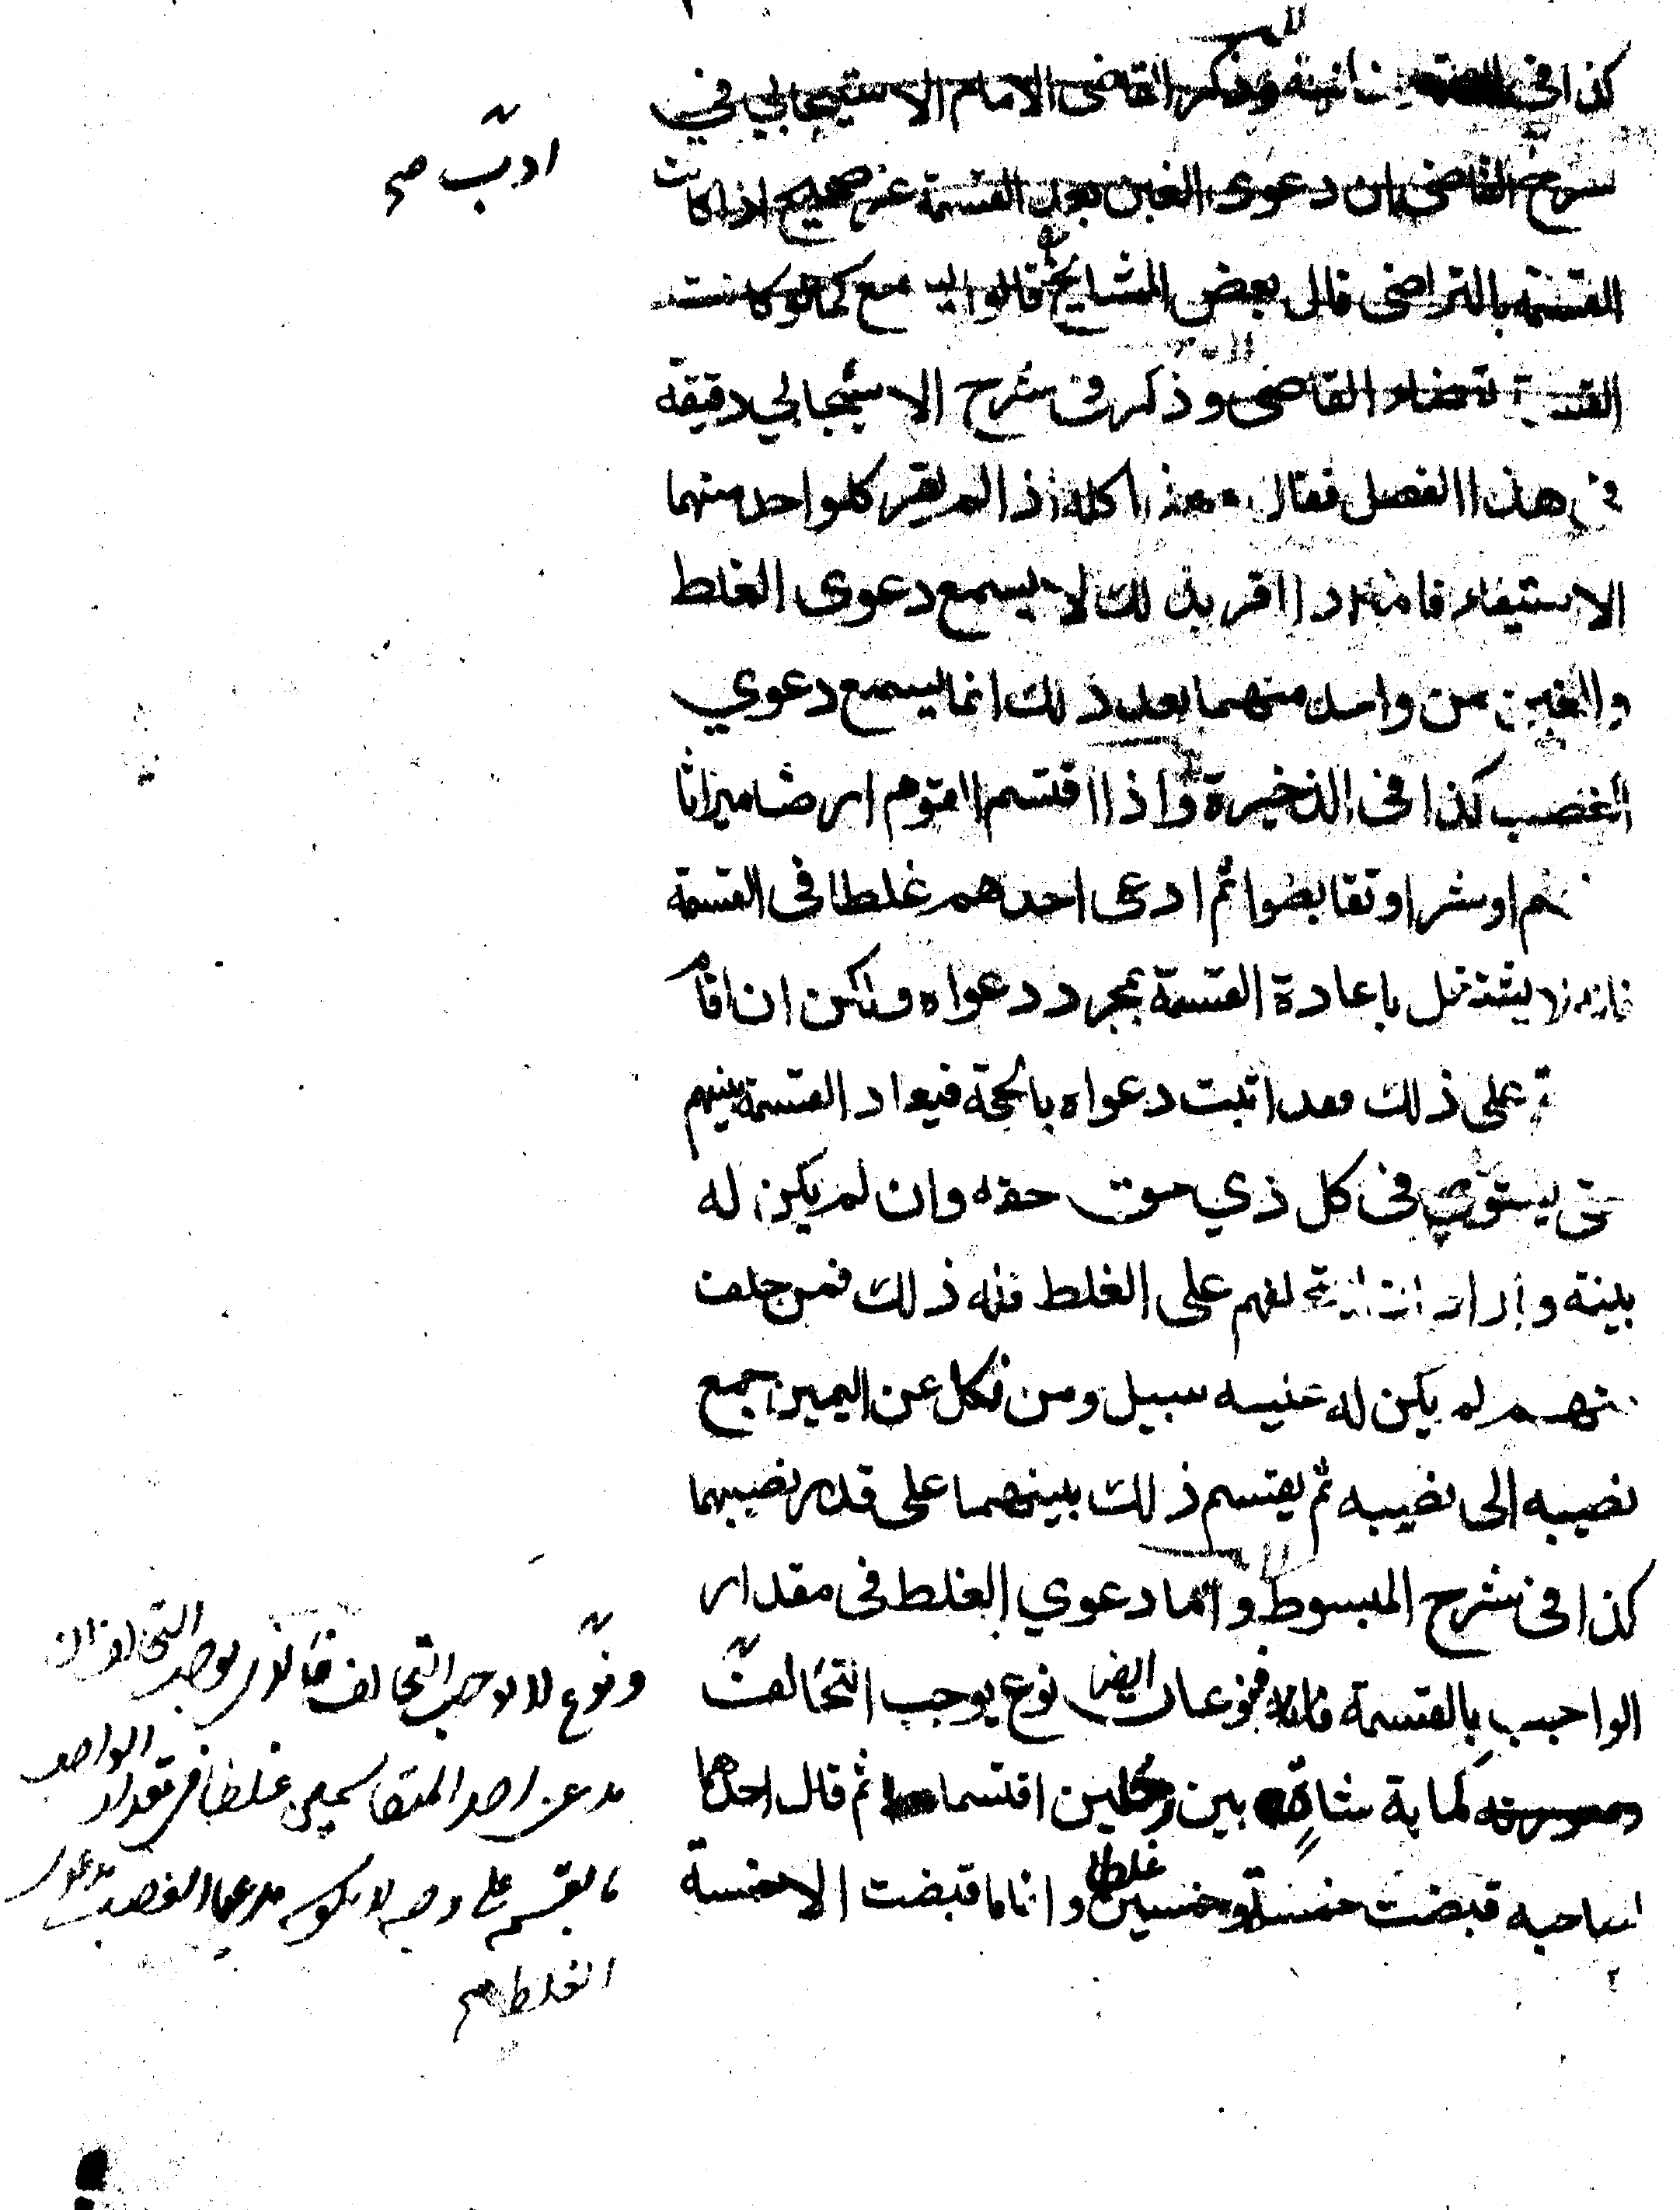 كذا في وذكر القاضي الامام الاسبيجابي في
شرح القاضي ان دعوى الغبن بعد القسمة غير صحيح اذا كانت
القسمة بالتراضي قال بعض المشايخ قالوا يسمع كما لو كانت
القسمة بقضاء القاضي وذكر في شرح الاسبيجابي دقيقة
في هذا الفصل فقال هذا كله اذا لم يقر كلواحد منهما
الاستيفاء فاما اذا اقر بذلك لا يسمع دعوى الغلط
والغبن من واحد منهما بعد ذلك انما يسمع دعوي
الغصب كذا في الذخيرة واذا اقتسم القوم ارضا ميراثا
او شرا وتقابضوا ثم ادعى احدهم غلطا في القسمة
فانه لا يشتغل باعادة القسمة بمجرد دعواه ولكن ان اقام
على ذلك فقد اثبت دعواه بالحجة فيعاد القسمة بينهم
حتى يستوفي كل ذي حق حقه وان لم يكن له
بينة واراد ان يستحلفهم على الغلط فله ذلك فمن حلف
منهم لم يكن له عليه سبيل ومن نكل عن اليمين جمع
نصيبه الى نصيبه ثم يقتسم ذلك بينهما على قدر نصيبهما
كذا في شرح المبسوط واما دعوي الغلط في مقدار
الواجب بالقسمة فنوعان ايضا نوع يوجب التحالف
كماية شاة بين رجلين اقتسما ثم قال احدهما
لصاحبه قبضت خمسة وخمسين غلطا وانا ما قبضت الا خمسة
ادب صح
ونوع لا يوجب التحالف فالذي يوجب التحالف ان
يدعي احد المتقاسمين غلطا في مقدار الواجب
بالقسم على وجه لا يكون مدعيا الغصب بدعوى
الغلط صح